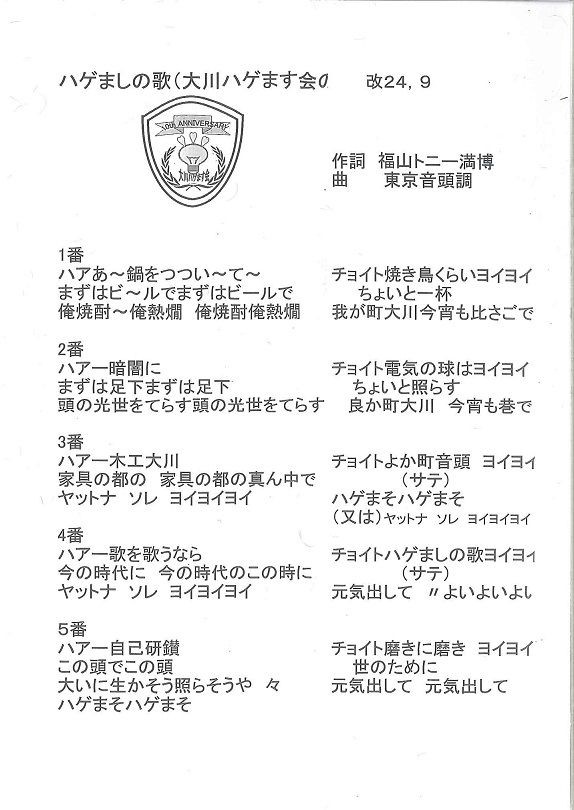 ハゲましの歌（大川ハゲます会の　　改２４，９
10th ANNIVERSARY
作詞　福山トニー満博
曲　　東京音頭調
１番
ハアあ～鍋をつつい～て～　　チョイト焼き鳥くらいヨイヨイ
まずはビ～ルでまずはビールで　　ちょいと一杯
俺焼酎～俺熱燗　俺焼酎俺熱燗　　我が町大川今宵も比さごで
２番
ハアー暗闇に　　チョイト電気の球はヨイヨイ
まずは足下まずは足下　　ちょいと照らす
頭の光世をてらす頭の光世をてらす　　良か町大川　今宵も巷で
３番
ハアー木工大川　　チョイトよか町音頭　ヨイヨイ
家具の都の　家具の都の真ん中で　　（サテ）
ヤットナ　ソレ　ヨイヨイヨイ　　ハゲまそハゲまそ
（又は）ヤットナ　ソレ　ヨイヨイヨイ
４番
ハアー歌を歌うなら　　チョイトハゲましの歌ヨイヨイ
今の時代に　今の時代のこの時に　　（サテ）
ヤットナ　ソレ　ヨイヨイヨイ　　元気出して　〃よいよいよい
５番
ハアー自己研鑚　　チョイト磨きに磨き　ヨイヨイ
この頭でこの頭　　世のために
大いに生かそう照らそうや　々　　元気出して　元気出して
ハゲまそハゲまそ